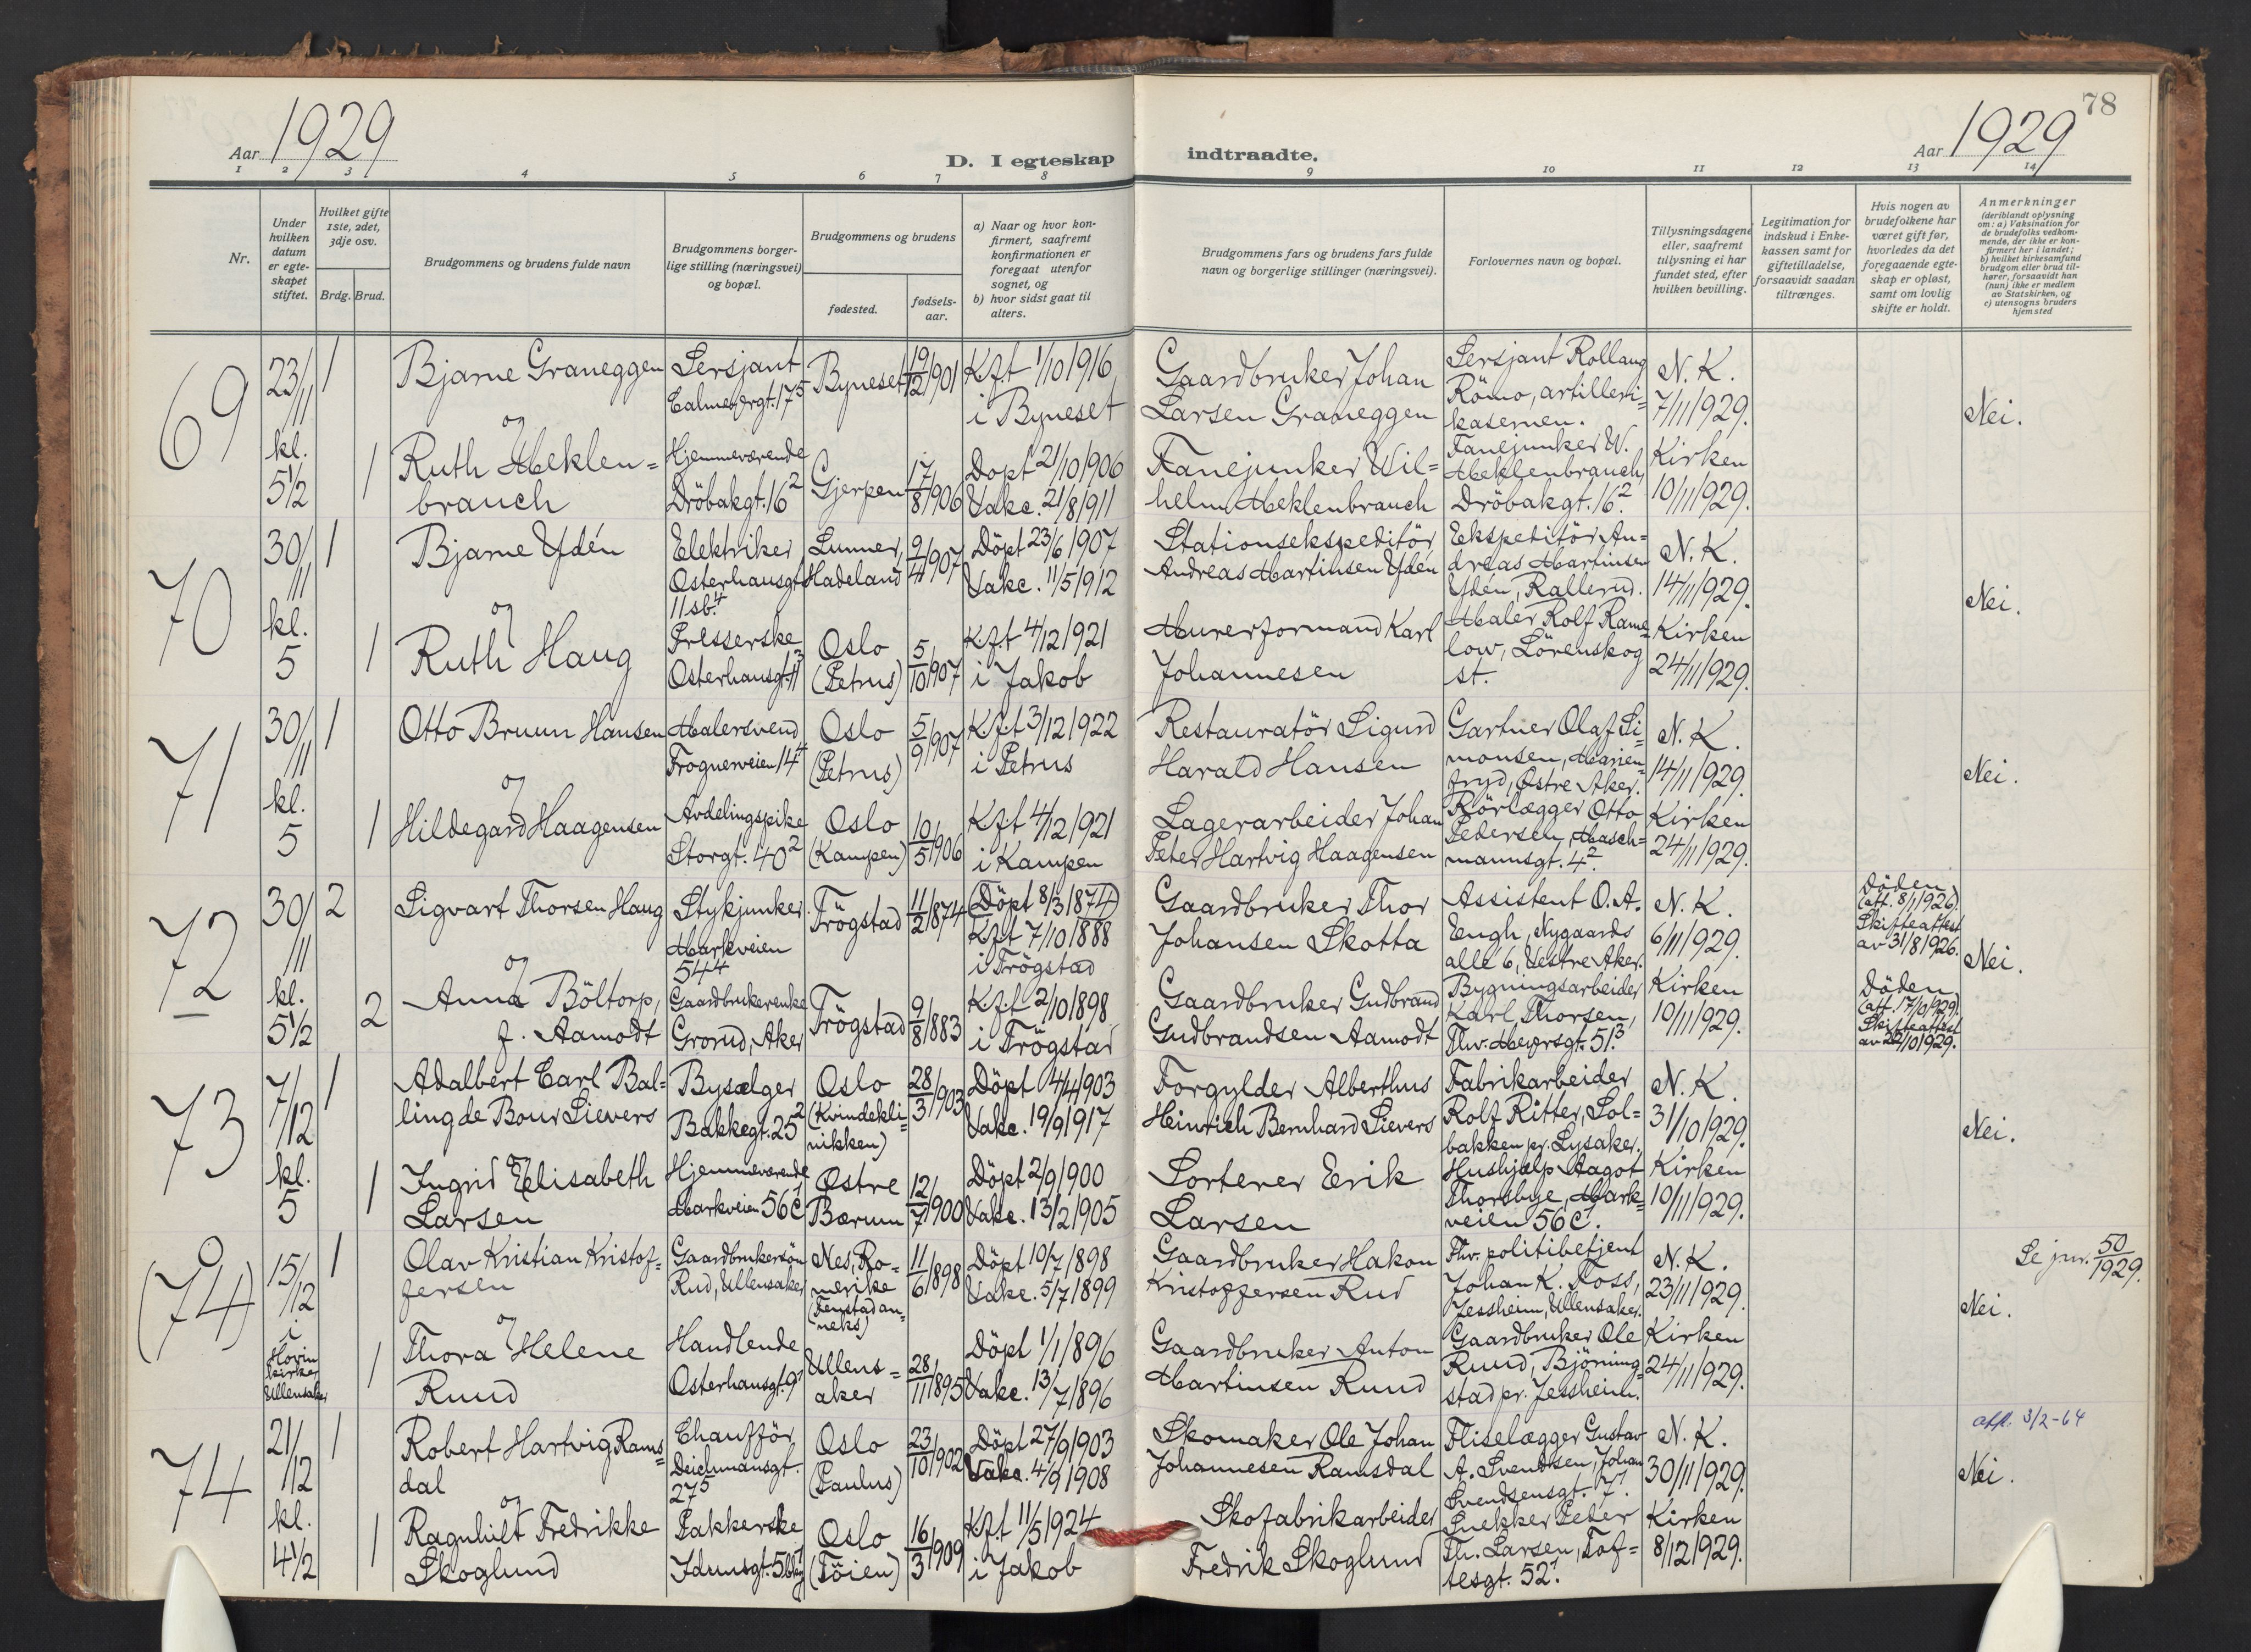 78
Aar 1929
D. I egteskap
indtraadte.
Aar 1929
1 2 3 4 5 6 7 8 9 10 11 12 13 14
Nr.
Under hvilken datum er egteskapet stiftet.
Hvilket gifte 1ste, 2det, 3dje osv.
Brdg. Brud.
Brudgommens og brudens fulde navn
Brudgommens borgerlige stilling (næringsvei) og bopæl.
Brudgommens og brudens
fødested.
fødsels-aar.
a) Naar og hvor konfirmert, saafremt konfirmationen er foregaat utenfor sognet, og
b) hvor sidst gaat til alters.
Brudgommens fars og brudens fars fulde navn og borgerlige stillinger (næringsvei).
Forlovernes navn og bopæl.
Tillysningsdagene eller, saafremt tillysning ei har fundet sted, efter hvilken bevilling.
Legitimation for indskud i Enkekassen samt for giftetilladelse, forsaavidt saadan tiltrænges.
Hvis nogen av brudefolkene har været gift før, hvorledes da det foregaaende egteskap er opløst, samt om lovlig skifte er holdt.
Anmerkninger
(deriblandt oplysning om: a) Vaksination for de brudefolks vedkommende, der ikke er konfirmert her i landet; b) hvilket kirkesamfund brudgom eller brud tilhører, forsaavidt han (hun) ikke er medlem av Statskirken, og c) utensogns bruders hjemsted
69
23/11 kl. 5½
1
Bjarne Graneggen
Sersjant
Byneset
19/12 1901
Kft 1/10 1916
i Byneset
Gaardbruker Johan
Larsen Graneggen
Sersjant Rollaug
Römo, artilleri=
kasernen.
N. K.
7/11 1929.
Nei.
og
1
Ruth Meklen=
brauch
Hjemmeværende
Dröbakgt. 16²
Gjerpen
17/8 1906
Döpt 21/10 1906
Vakc. 21/8 1911
Fanejunker Wil=
helm Meklenbrauch
Fanejunker W.
Meklenbrauch,
Dröbakgt. 16².
Kirken
10/11 1929.
70
30/11 kl. 5
1
Bjarne Ydén
Elektriker
Osterhausgt.
11 sb.⁴
Lunner,
Hadeland
9/4 1907
Döpt 23/6 1907
Vakc. 11/5 1912
Stationsekspeditör
Andreas Martinsen Ydén
Ekspeditör An=
dreas Martinsen
Ydén, Rallerud.
N. K.
14/11 1929.
Nei.
og
1
Ruth Haug
Presserske
Osterhausgt. 11³
Oslo
(Petrus)
5/10 1907
Kft 4/12 1921
i Jakob
Murerformand Karl
Johannesen
Maler Rolf Rame=
low, Lörenskog
st.
Kirken
24/11 1929.
71
30/11 kl. 5
1
Otto Bruun Hansen
Malersvend
Frognerveien 14⁴
Oslo
(Petrus)
5/9 1907
Kft 3/12 1922
i Petrus
Restauratör Sigurd
Harald Hansen
Gartner Olaf Si=
monsen, Marien=
fryd, Østre Aker.
N. K.
14/11 1929.
Nei.
og
1
Hildegard Haagensen
Avdelingspike
Storgt. 40²
Oslo
(Kampen)
10/5 1906
Kft 4/12 1921
i Kampen
Lagerarbeider Johan
Peter Hartvig Haagensen
Rörlægger Otto
Pedersen, Masch=
mannsgt. 4².
Kirken
24/11 1929.
72
30/11 kl. 5½
2
Sigvart Thorsen Haug
Stykjunker
Markveien
54⁴
Trögstad
11/2 1874
(Döpt 8/3 1874)
Kft 7/10 1888
i Trögstad
Gaardbruker Thor
Johansen Skotta
Assistent O. A.
Engh, Nygaards
alle 6, Vestre Aker.
N. K.
6/11 1929.
Döden
(att. 8/1 1926).
Skifteattest
av 31/8 1926.
Nei.
og
2
Anna Böltorp,
f. Aamodt
Gaardbrukerenke
Grorud, Aker
Trögstad
9/8 1883
Kft 2/10 1898
i Trögstad
Gaardbruker Gudbrand
Gudbrandsen Aamodt
Bygningsarbeider
Karl Thorsen,
Thv. Meyersgt. 51³.
Kirken
10/11 1929.
Döden
(att. 17/10 1929).
Skifteattest
av 22/10 1929.
73
7/12 kl. 5
1
Adalbert Carl Bal=
ling de Bour Sievers
Bysælger
Bakkegt. 25²
Oslo
(Kvindekli=
nikken)
28/3 1903
Döpt 14/4 1903
Vakc. 19/9 1917
Forgylder Alberthus
Heinrich Bernhard Sievers
Fabrikarbeider
Rolf Ritter, Sol=
bakken pr. Lysaker.
N. K.
31/10 1929.
Nei.
og
1
Ingrid Elisabeth
Larsen
Hjemmeværende
Markveien 56c¹
Østre
Bærum
12/7 1900
Döpt 2/9 1900
Vakc. 13/2 1905
Sorterer Erik
Larsen
Hushjælp Aagot
Thorsbye, Mark=
veien 56c¹.
Kirken
10/11 1929.
0
(74)
15/12 i Hovin kirke, Ullensaker
1
Olav Kristian Kristof=
fersen
Gaardbrukersön
Rud, Ullensaker
Nes, Ro=
merike
(Fenstad an=
neks)
11/6 1898
Döpt 10/7 1898
Vakc. 5/7 1899
Gaardbruker Hakon
Kristoffersen Rud
Fhv. politibetjent
Johan K. Foss,
Jessheim, Ullensaker.
N. K.
23/11 1929.
Nei.
Se jnr. 50/1929.
og
1
Thora Helene
Ruud
Handlende
Osterhausgt. 9¹
Ullens=
aker
28/11 1895
Döpt 1/1 1896
Vakc. 13/7 1896
Gaardbruker Anton
Martinsen Ruud
Gaardbruker Ole
Ruud, Björning=
stad pr. Jessheim.
Kirken
24/11 1929.
74
21/12 kl. 4½
1
Robert Hartvig Rams=
dal
Chaufför
Deichmansgt.
27⁵
Oslo
(Paulus)
23/10 1902
Döpt 27/9 1903
Vakc. 4/9 1908
Skomaker Ole Johan
Johannesen Ramsdal
Fliselægger Gustav
A. Svendsen, Johan
Svendsensgt. 7¹.
N. K.
30/11 1929.
Nei.
att. 3/2-64
og
1
Ragnhild Fredrikke
Skoglund
Pakkerske
Oslo
(Töien)
16/3 1909
Kft 11/5 1924
i Jakob
Skofabrikarbeider
Fredrik Skoglund
Snekker Peter
Th. Larsen, Tof=
tesgt. 52¹.
Kirken
8/12 1929.